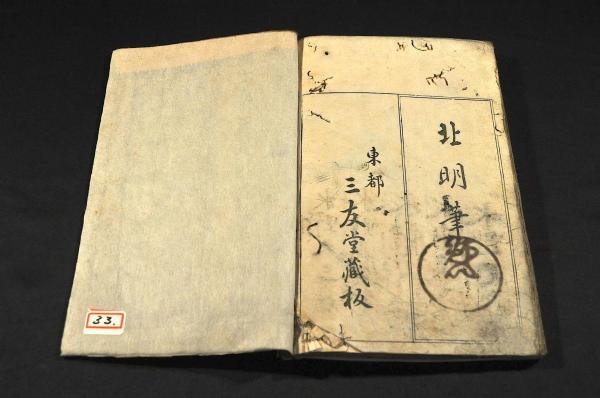 北明筆
東都
三友堂藏板
33.